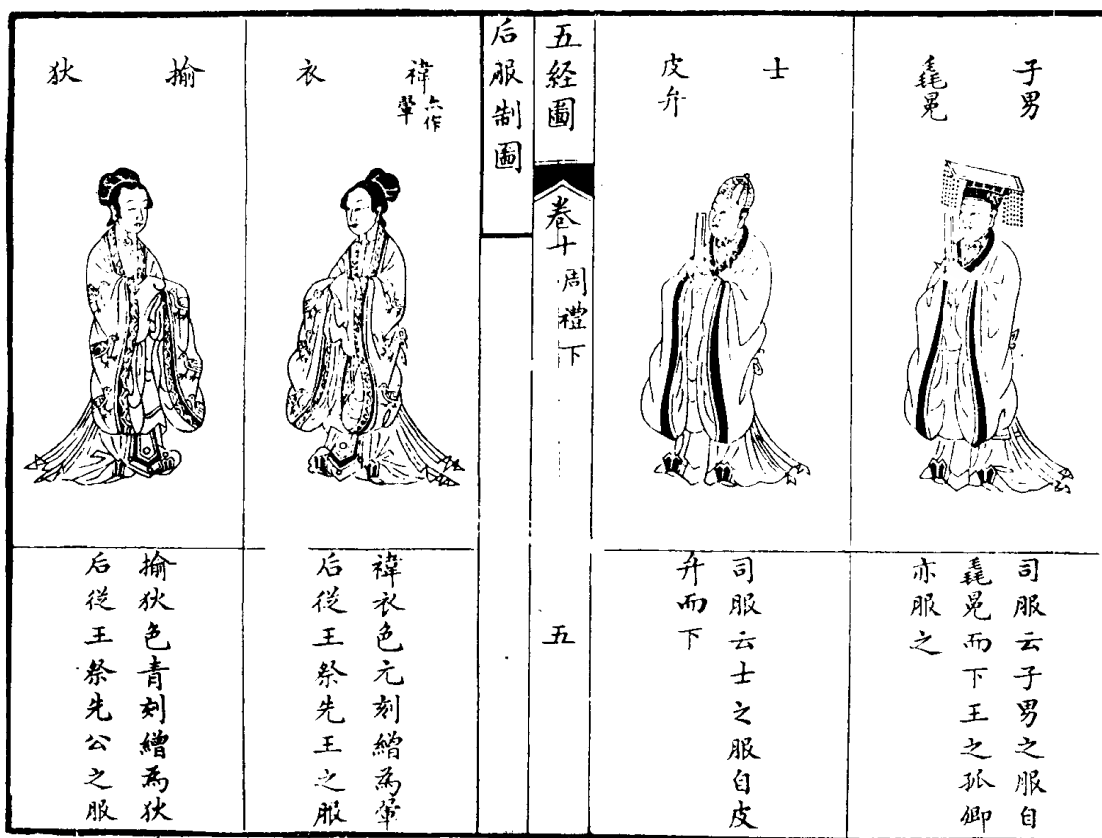 子男
毳冕
司服云子男之服自
毳冕而下王之孤卿
亦服之
士
皮弁
司服云士之服自皮
弁而下
五経圖
卷十周禮下
五
后服制圖
褘
六作
翬
衣
褘衣色元刻繒為翬
后從王祭先王之服
揄
狄
揄狄色青刻繒為狄
后從王祭先公之服